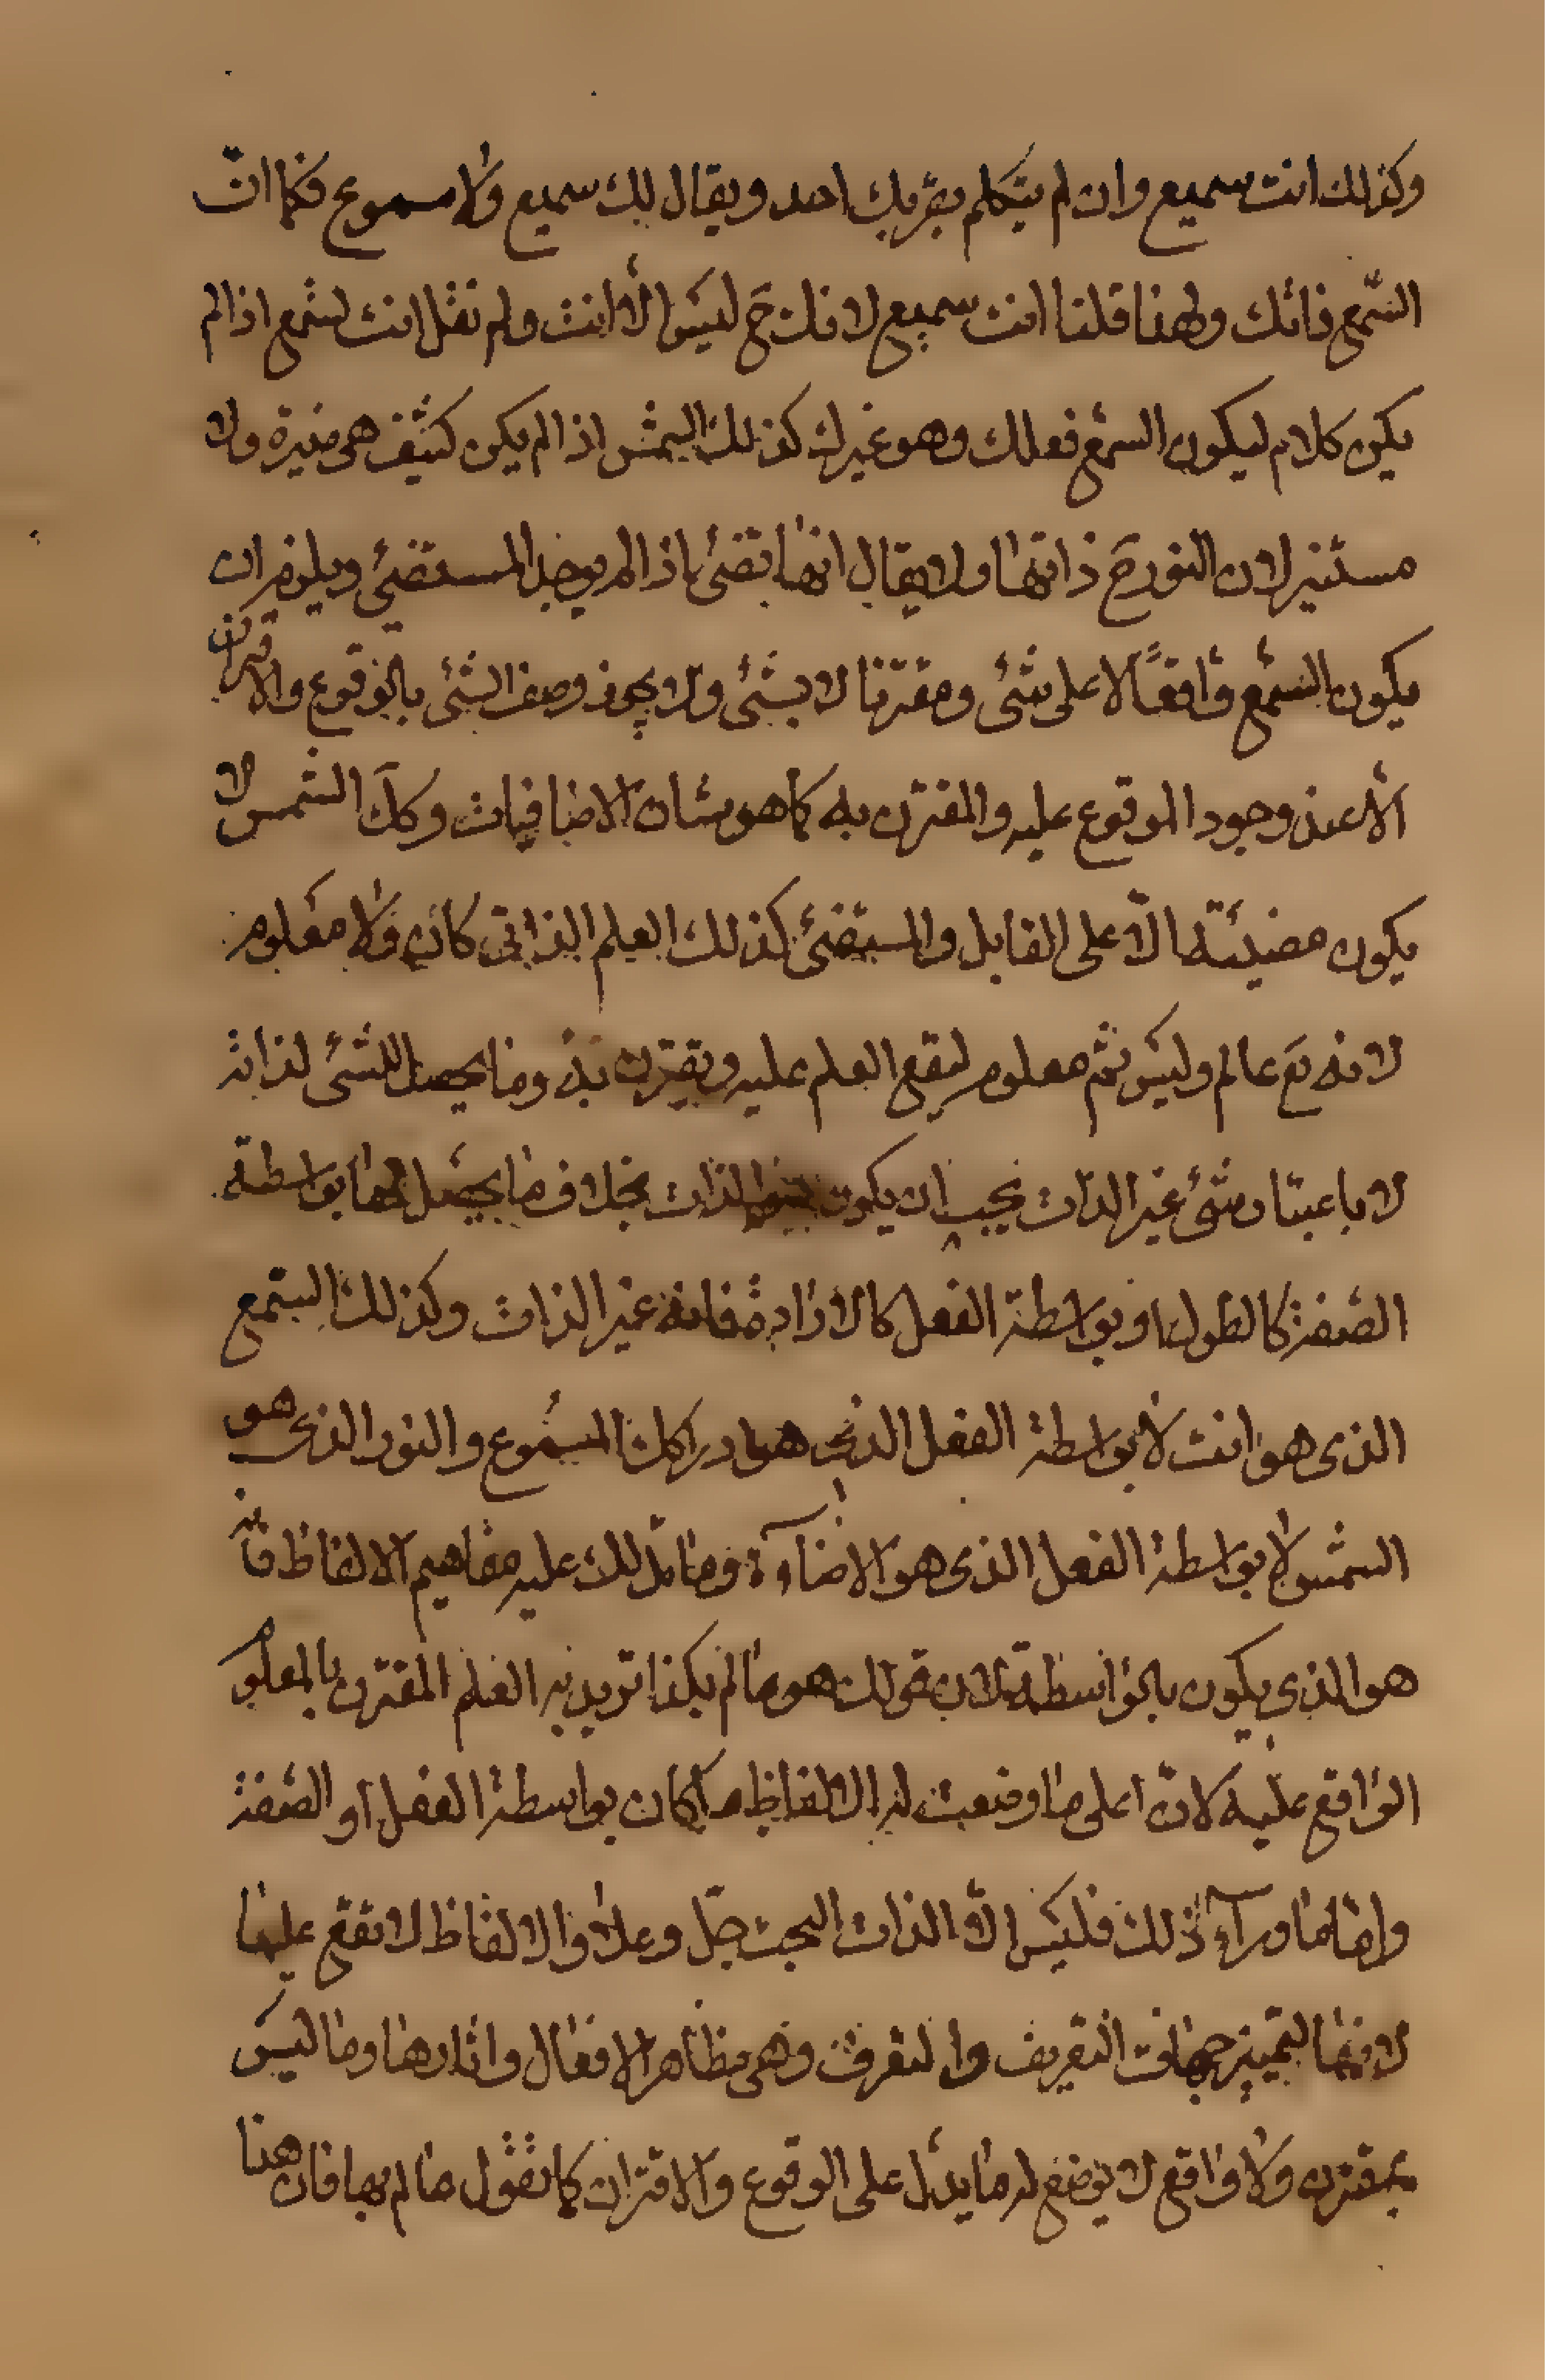 وكذلك انت سميع وان لم يتكلم بقربك احد ويقال لك سميع ولا مسموع فكما انّ
السّمع ذاتك ولهذا قلنا انت سميع لانك ح ليس الّا انت ولم نقل انت تسمع اذا لم
يكن كلام ليكون السمع فعلك وهو غيرك كذلك الشمس اذا لم يكن كثيف هى منيرة ولا
مستنير لان النور ح ذاتها ولا يقال انها تضئ اذا لم يوجد المستضئ ويلزم ان
يكون السمع واقعًا لا على شئ ومقترنا لا بشئ ولا يجوز وصف الشئ بالوقوع والاقتران
الّا عند وجود الموقوع عليه والمقترن به كما هو شان الاضافيات وكك الشمس لا
يكون مضيئة الّا على القابل والمستضئ كذلك العلم الذاتى كان ولا معلوم
لانه تع عالم وليس ثم معلوم ليقع العلم عليه ويقترن به وما يحصل للشئ لذاته
لا باعتبار شئ غير الذات يجب ان يكون الذات بخلاف ما يحصل لها بواسطة
الصفة كالطول او بواسطة الفعل كالارادة فانه غير الذات وكذلك السمع
الذى هو انت لا بواسطة الفعل الذى هو ادراكك المسموع والنور الذى هو
الشمس لا بواسطة الفعل الذى هو الاضاءة وما تدلك عليه مفاهيم الالفاظ فانه
هو الذى يكون بالواسطة لان قولك هو عالم بكذا تريد به العلم المقترن بالمعلوم
الواقع عليه لانّ اعلى ما وضعت له الالفاظ ما كان بواسطة الفعل او الصفة
واما ما وراء ذلك فليس الّا الذات البحت جلّ وعلا والالفاظ لا تقع عليها
لانها لتمييز جهات التعريف والتعرف وهى مظاهر الافعال واثارها وما ليس
بمقترن ولا واقع لا يوضع له ما يدل على الوقوع والاقتران كما تقول عالم بها فان هنا